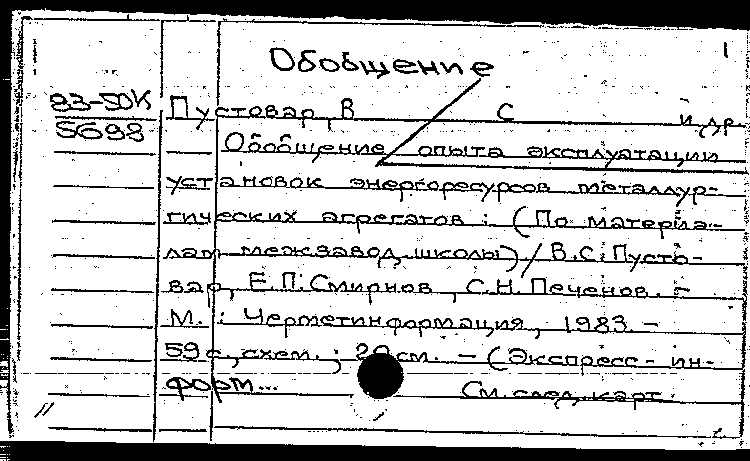 Обобщение
1
83-50К
5698
Пустовар, В С и др
Обобщение опыта эксплуатации
установок энергоресурсов металлур-
гических агрегатов : (По материа-
лам межзавод. школы) / В.С. Пусто-
вар, Е.П. Смирнов, С.Н. Печенов. -
М. : Черметинформация, 1983. -
59 с., схем. ; 20 см. - (Экспресс-ин-
форм...
См. след. карт.